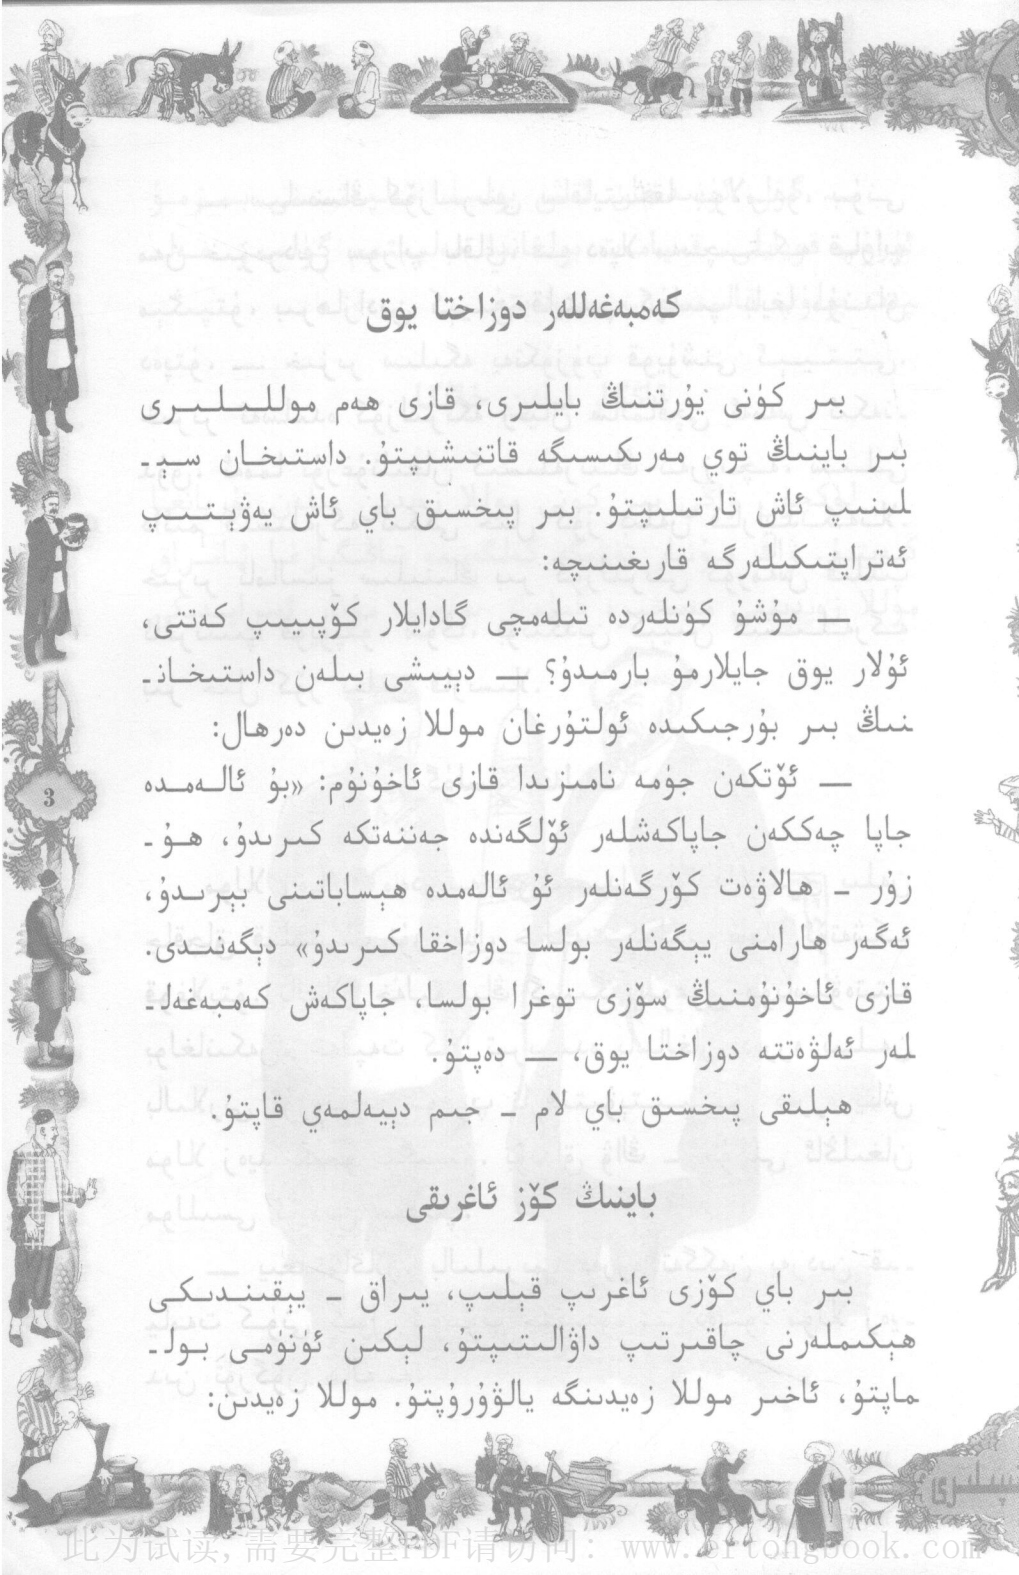 كەمبەغەللەر دوزاختا يوق
بىر كۈنى يۇرتنىڭ بايلىرى، قازى ھەم موللىلىرى
بىر باينىڭ توي مەرىكىسىگە قاتنىشىپتۇ. داستىخان سې-
لىنىپ ئاش تارتىلىپتۇ. بىر پىخسىق باي ئاش يەۋېتىپ
ئەتراپتىكىلەرگە قارىغىنىچە:
— مۇشۇ كۈنلەردە تىلەمچى گادايلار كۆپىيىپ كەتتى،
ئۇلار يوق جايلارمۇ بارمىدۇ؟ — دېيىشى بىلەن داستىخان-
نىڭ بىر بۇرجىكىدە ئولتۇرغان موللا زەيدىن دەرھال:
— ئۆتكەن جۈمە نامىزىدا قازى ئاخۇنۇم: «بۇ ئالەمدە
جاپا چەككەن جاپاكەشلەر ئۆلگەندە جەننەتكە كىرىدۇ، ھۇ-
زۇر - ھالاۋەت كۆرگەنلەر ئۇ ئالەمدە ھېساباتىنى بېرىدۇ،
ئەگەر ھارامنى يېگەنلەر بولسا دوزاخقا كىرىدۇ» دېگەنىدى.
قازى ئاخۇنۇمنىڭ سۆزى توغرا بولسا، جاپاكەش كەمبەغەل-
لەر ئەلۋەتتە دوزاختا يوق، — دەپتۇ.
ھېلىقى پىخسىق باي لام - جىم دېيەلمەي قاپتۇ.
باينىڭ كۆز ئاغرىقى
بىر باي كۆزى ئاغرىپ قېلىپ، يىراق - يېقىندىكى
ھېكىملەرنى چاقىرتىپ داۋالىتىپتۇ، لېكىن ئۈنۈمى بول-
ماپتۇ، ئاخىر موللا زەيدىنگە يالۋۇرۇپتۇ. موللا زەيدىن:
3
此为试读,需要完整PDF请访问: www.ertongbook.com